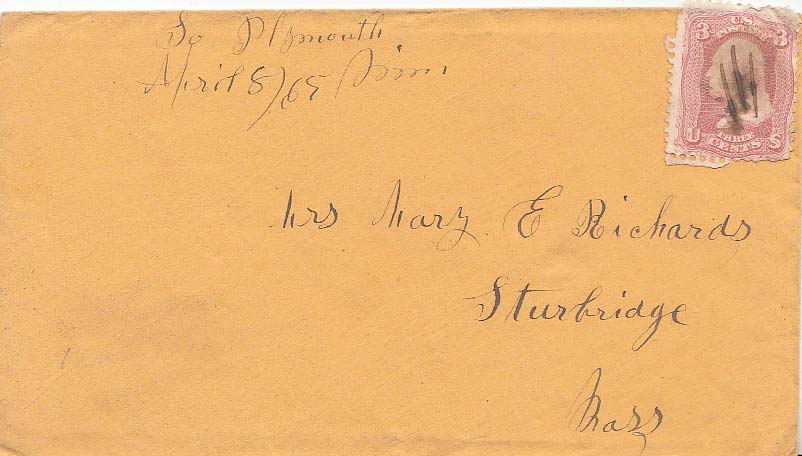 So Plymouth
April 8/65
3 U.S. 3
POSTAGE
THREE
U CENTS S
Mrs Mary E Richards
Sturbridge
Mass